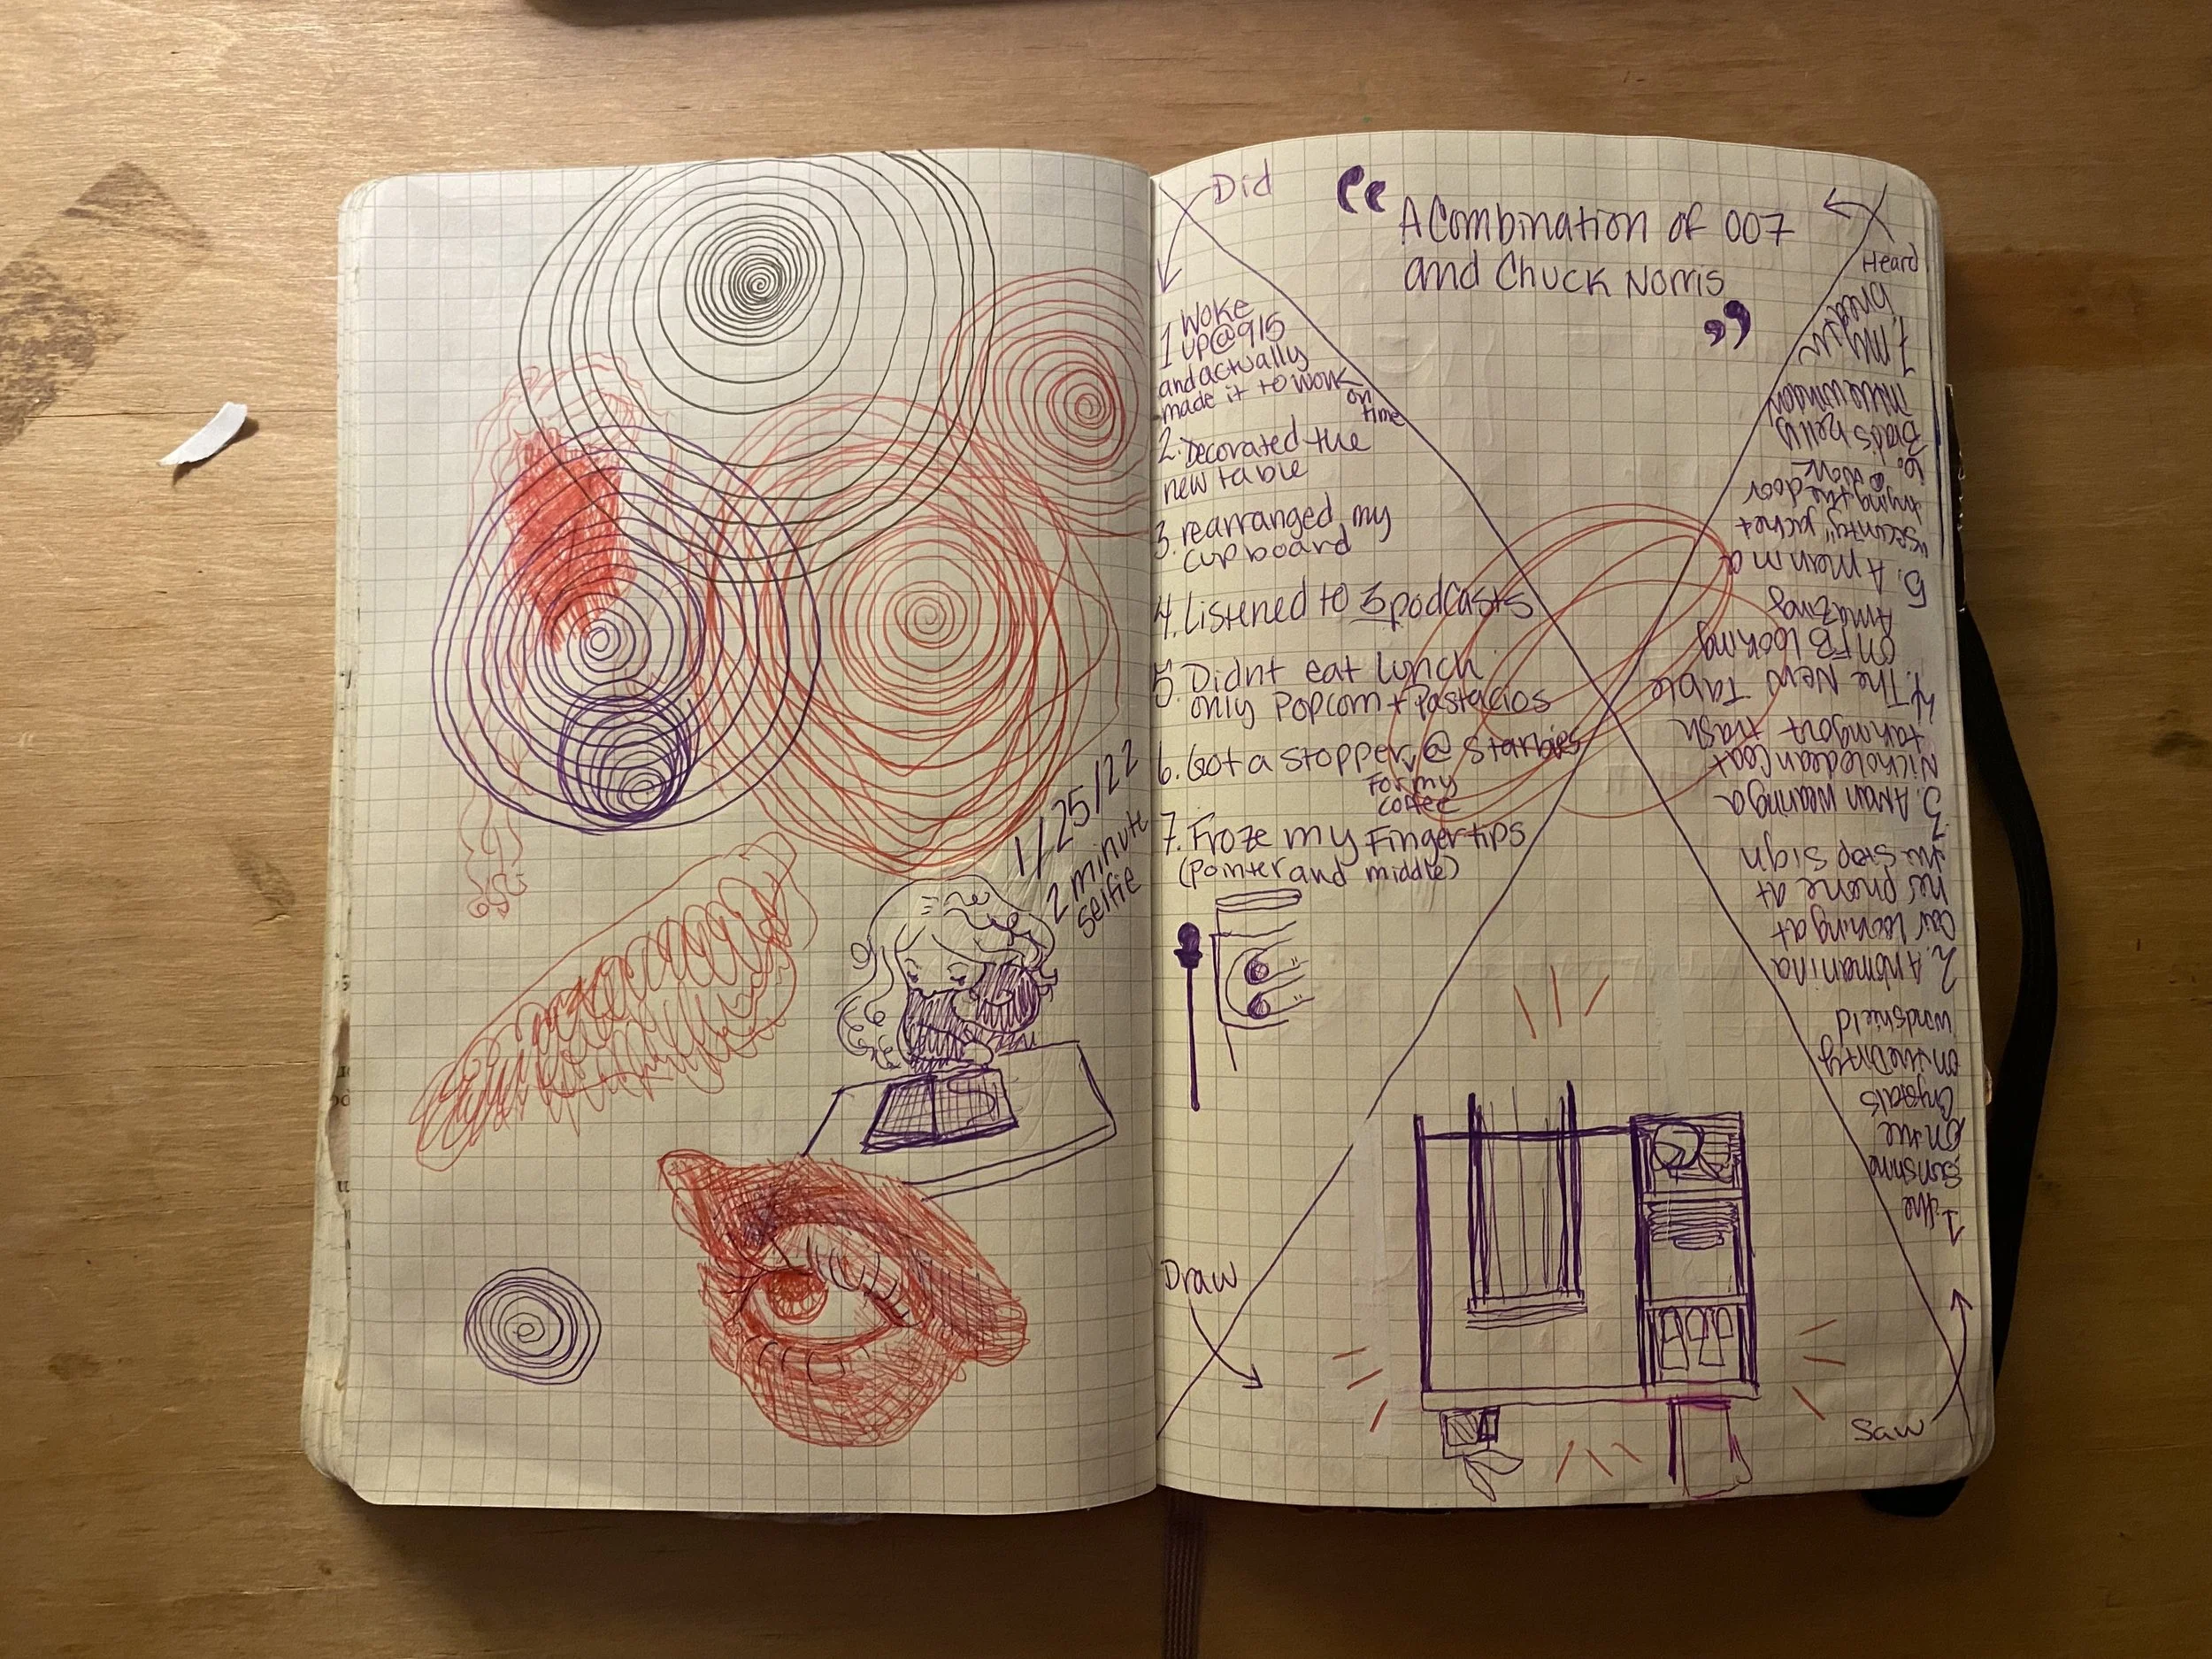 1/25/22
2 minute
selfie
Did
“ A Combination of 007
and Chuck Norris ”
Heard
1 Woke
up@915
and actually
made it to work
on
time
2. Decorated the
new table
3. rearranged my
cupboard
4. Listened to 3 podcasts
5 Didnt eat lunch
only Popcorn + Pastacios
6. Got a stopper @ starbies
For my
coffee
7. Froze my Fingertips
(Pointer and middle)
Draw
Saw
1. the
sunshine
on the
Crystals
on the Dirty
windshield
2. A woman in a
car looking at
her phone at
the stop sign
3. A man wearing a
coat
taking out trash
4. The New Table
on FB looking
Amazing
5. A man in a
"security" jacket
trying the door
@ work
6. Brad's belly
in the window
7. my